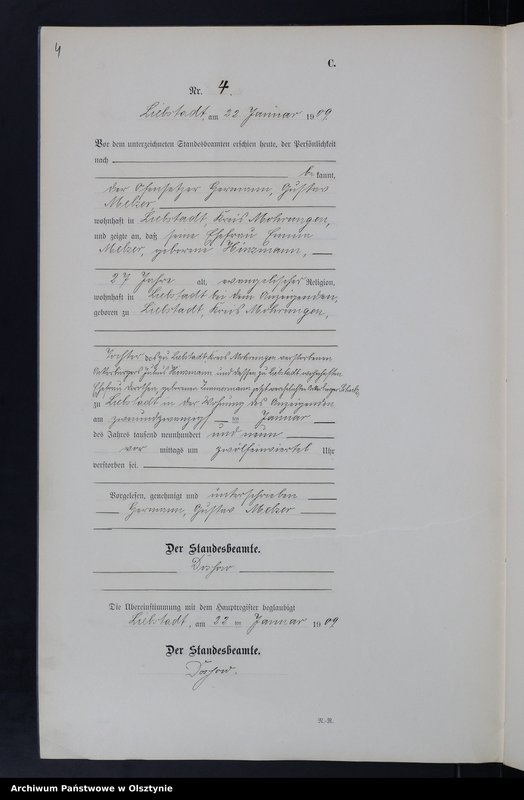 4
C.
Nr. 4.
Liebstadt, am 22 Januar 1909.
Vor dem unterzeichneten Standesbeamten erschien heute, der Persönlichkeit
nach
bekannt,
der Ofensetzer Hermann, Gustav
Melzer,
wohnhaft in Liebstadt, Kreis Mohrungen,
und zeigte an, daß seine Ehefrau
Melzer, geborene Hinzmann,
27 Jahre alt, evangelischer Religion,
wohnhaft in Liebstadt bei dem Anzeigenden,
geboren zu Liebstadt, Kreis Mohrungen,
Tochter des zu Liebstadt Kreis Mohrungen verstorbenen
Ackerbürgers Julius Hinzmann, und dessen zu Liebstadt wohnhaften
Ehefrau geborenen Zimmermann jetzt
zu Liebstadt in der Wohnung des Anzeigenden
am zweiundzwanzigsten Januar
des Jahres tausend neunhundert und neun
vor mittags um Uhr
verstorben sei.
Vorgelesen, genehmigt und unterschrieben
Hermann, Gustav Melzer
Der Standesbeamte.
Die Übereinstimmung mit dem Hauptregister beglaubigt
Liebstadt, am 22 ten Januar 1909
Der Standesbeamte.
N.-R.
Archiwum Państwowe w Olsztynie